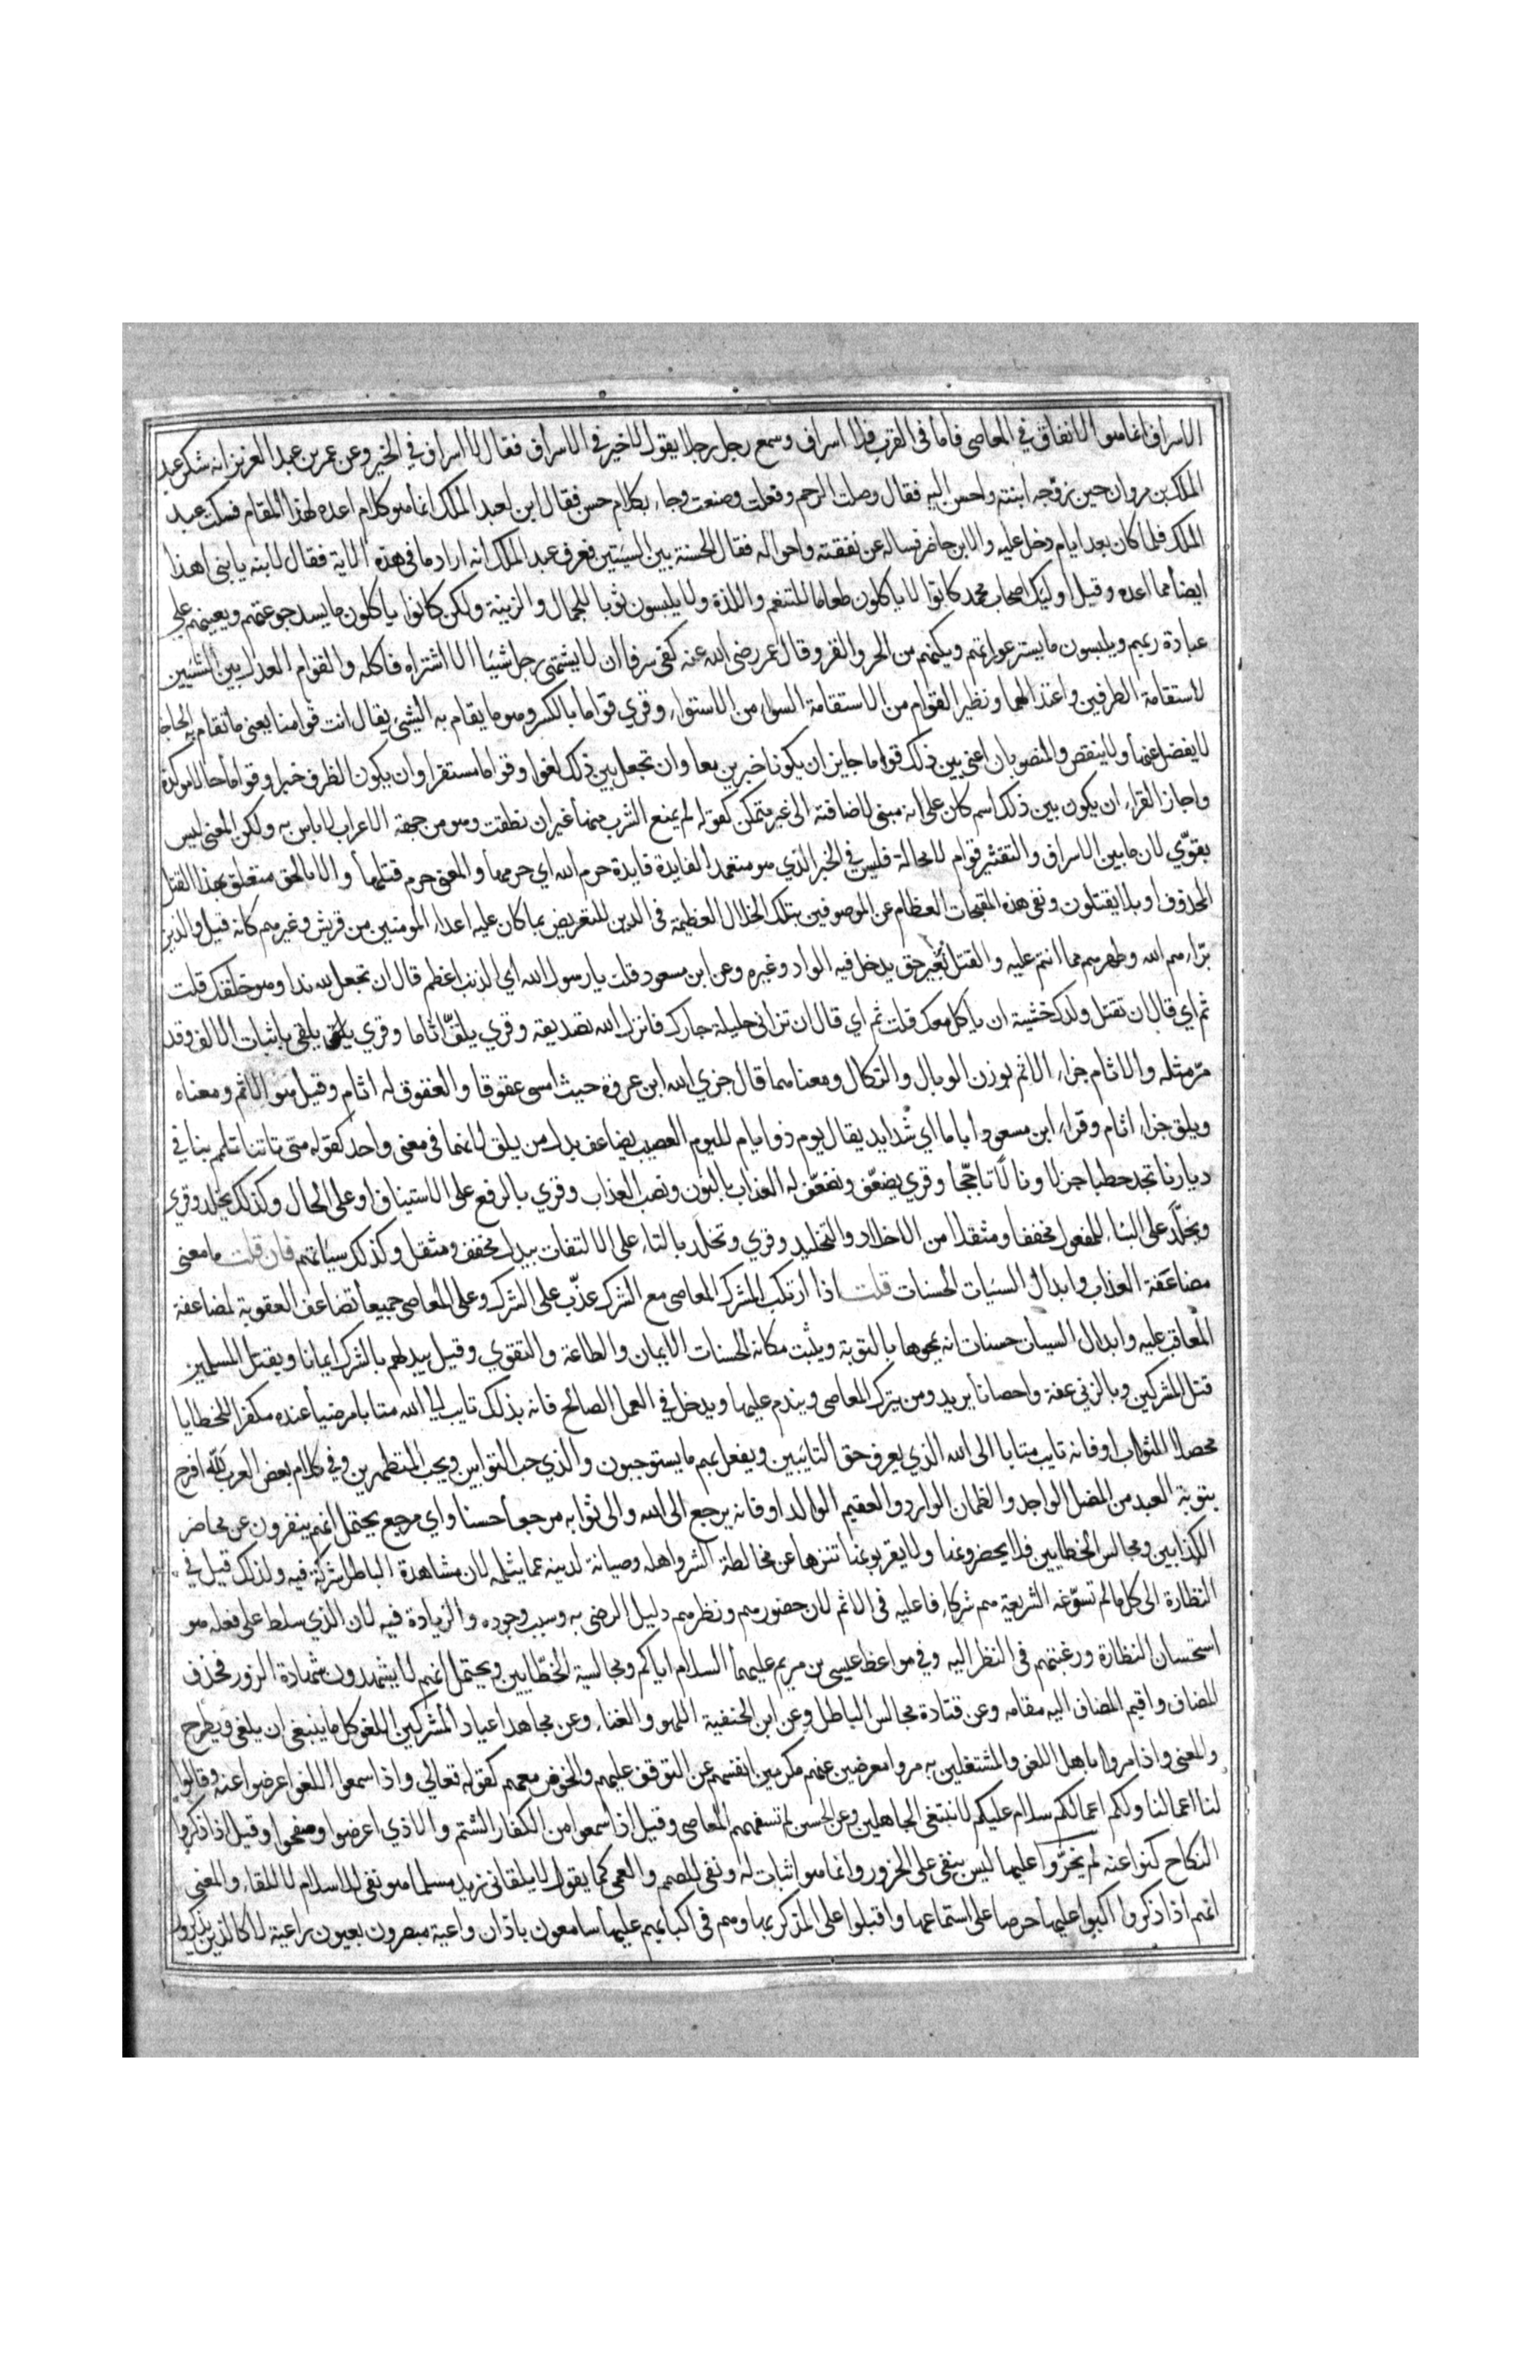 الاسراف انما هو الانفاق في المعاصى فاما فى القرب فلا اسراف وسمع رجل رجلا يقول لا خير فى الاسراف فقال لا اسراف في الخير وعن عمر بن عبد العزيز انه شكر عبد
الملك بن مروان حين زوجه ابنته واحسن اليه فقال وصلت الرحم وفعلت وصنعت وجاء بكلام حسن فقال ابن لعبد الملك انما هو كلام اعده لهذا المقام فسكت عبد
الملك فلما كان بعد ايام دخل عليه والابن حاضر فساله عن نفقته واحواله فقال الحسنة بين السيئتين فعرف عبد الملك انه اراد ما فى هذه الاية فقال لابنه يا بنى اهذا
ايضا مما اعده وقيل اوليك اصحاب محمد كانوا لا ياكلون طعاما للتنعم واللذة ولا يلبسون ثوبا للجمال والزينة ولكن كانوا ياكلون ما يسد جوعتهم ويعينهم على
عبادة ربهم ويلبسون ما يستر عوراتهم ويكنهم من الحر والقر وقال عمر رضى الله عنه كفى سرفا ان لا يشتهى رجل شيئا الا اشتراه فاكله والقوام العدل بين الشيئين
لاستقامة الطرفين واعتدالهما ونظير القوام من الاستقامة السواء من الاستواء وقري قواما بالكسر وهو ما يقام به الشيئ يقال انت قوامنا يعنى ما تقام به الحاجة
لا يفضل عنها ولا ينقص والمنصوبان اعنى بين ذلك قواما جايز ان يكونا خبرين معا وان تجعل بين ذلك لغوا وقواما مستقرا وان يكون الظرف خبرا وقواما حالا موكدة
واجاز الفراء ان يكون بين ذلك اسم كان على انه مبنى لاضافته الى غير متمكن كقوله لم يمنع الشرب منها غير ان نطقت وهو من جهة الاعراب لا باس به ولكن المعنى ليس
بقوّي لان ما بين الاسراف والتقتير قوام لا محالة فليس في الخبر الذي هو معتمد الفايدة فايدة حرم الله اي حرمها والمعنى حرم قتلها والا بالحق متعلق بهذا القتل
المحذوف او بلا يقتلون ونفى هذه المقبحات العظام عن الموصوفين بتلك الخلال العظيمة فى الدين للتعريض بما كان عليه اعداء المومنين من قريش وغيرهم كانه قيل والذين
برّاءهم الله وطهرهم مما انتم عليه والقتل بغير حق يدخل فيه الواد وغيره وعن ابن مسعود قلت يا رسول الله اي الذنب اعظم قال ان تجعل لله ندا وهو خلقك قلت
ثم اي قال ان تقتل ولدك خشية ان ياكل معك قلت ثم اي قال ان تزانى حليلة جارك فانزل الله تصديقه وقري يلقّ اثاما وقري يلقى باثبات الالف وقد
مرّ مثله والاثام جزاء الاثم بوزن الوبال والنكال ومعناهما قال جزي الله ابن عروة حيث امسى عقوقا والعقوق له اثام وقيل هو الاثم ومعناه
ويلق جزاء اثام وقراء ابن مسعود اياما اي شدايد يقال يوم ذو ايام لليوم العصيب يضاعف بدل من يلق لانهما فى معنى واحد كقوله متى تاتنا تلمم بنا في
ديارنا تجد حطبا جزلا ونا لًا تاججّا وقري يضعّف ونضعّف له العذاب بالنون ونصب العذاب وقري بالرفع على الاستيناف او على الحال وكذلك يخلد وقري
ويخلّد على البناء للمفعول مخففا ومثقلا من الاخلاد والتخليد وقري وتخلد بالتاء على الالتفات يبدل مخفف ومثقل وكذلك سيئاتهم فان قلت ما معنى
مضاعفة العذاب وابدال السيئات الحسنات قلت اذا ارتكب المشرك المعاصى مع الشرك عذّب على الشرك وعلى المعاصى جميعا تضاعف العقوبة لمضاعفة
المعاقب عليه وابدال السيئات حسنات انه يمحوها بالتوبة ويثبت مكانه الحسنات الايمان والطاعة والتقوي وقيل يبدلهم بالشرك ايمانا وبقتل المسلمين
قتل المشركين وبالزنى عفة واحصانا يريد ومن يترك المعاصى ويندم عليها ويدخل في العمل الصالح فانه بذلك تايب الى الله متابا مرضيا عنده مكفرا للخطايا
محصلا للثواب او فانه تايب متابا الى الله الذي يعرف حق التايبين ويفعل بهم ما يستوجبون والذي حب التوابين ويحب المتطهرين وفي كلام بعض العرب لله افرح
بتوبة العبد من المضل الواجد والظمان الوارد والعقيم الوالد او فانه يرجع الى الله والى ثوابه مرجعا حسنا واي مرجع يحتمل انهم ينفرون عن محاضر
الكذابين ومجالس الخطايين فلا يحضرونها ولا يقربونها تنزها عن مخالطة الشر واهله وصيانة لدينه عما يثلمه لان مشاهدة الباطل شركة فيه ولذلك قيل في
النظارة الى كل ما لم تسوّغه الشريعة هم شركاء فاعليه فى الاثم لان حضورهم ونظرهم دليل الرضى به وسبب وجوده والزيادة فيه لان الذي سلط على فعله هو
استحسان النظارة ورغبتهم فى النظر اليه وفي مواعظ عيسى بن مريم عليهما السلام اياكم ومجالسة الخطّايين ويحتمل انهم لا يشهدون شهادة الزور فحذف
المضاف واقيم المضاف اليه مقامه وعن قتادة مجالس الباطل وعن ابن الحنفية اللهو والغناء وعن مجاهد اعياد المشركين اللغو كل ما ينبغى ان يلغى ويطرح
والمعنى واذا مروا باهل اللغو والمشتغلين به مروا معرضين عنهم مكرمين انفسهم عن التوقف عليهم والخوض معهم كقوله تعالى واذا سمعوا اللغو اعرضوا عنه وقالوا
لنا اعمالنا ولكم اعمالكم سلام عليكم لا نبتغى الجاهلين وعن الحسن لم تسفههم المعاصى وقيل اذا سمعوا من الكفار الشتم والاذي اعرضوا وصفحوا وقيل اذا ذكروا
النكاح كنوا عنه لم يخرّوا عليها ليس بنفى على الخرور وانما هو اثبات له ونفى للصمم والعمى كما يقول لا يلقانى زيد مسلما هو نفى للاسلام لا للقاء والمعنى
انهم اذا ذكروا اكبوا عليها حرصا على استماعها واقبلوا على المذكر بها وهم فى اكبابهم عليها سامعون باذان واعية مبصرون بعيون راعية لا كالذين يذكرون